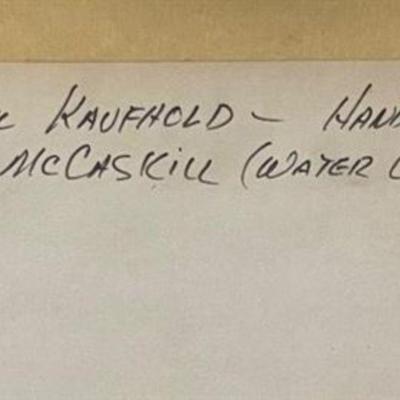 KAUFHOLD – HAND
McCASKILL (WATER C